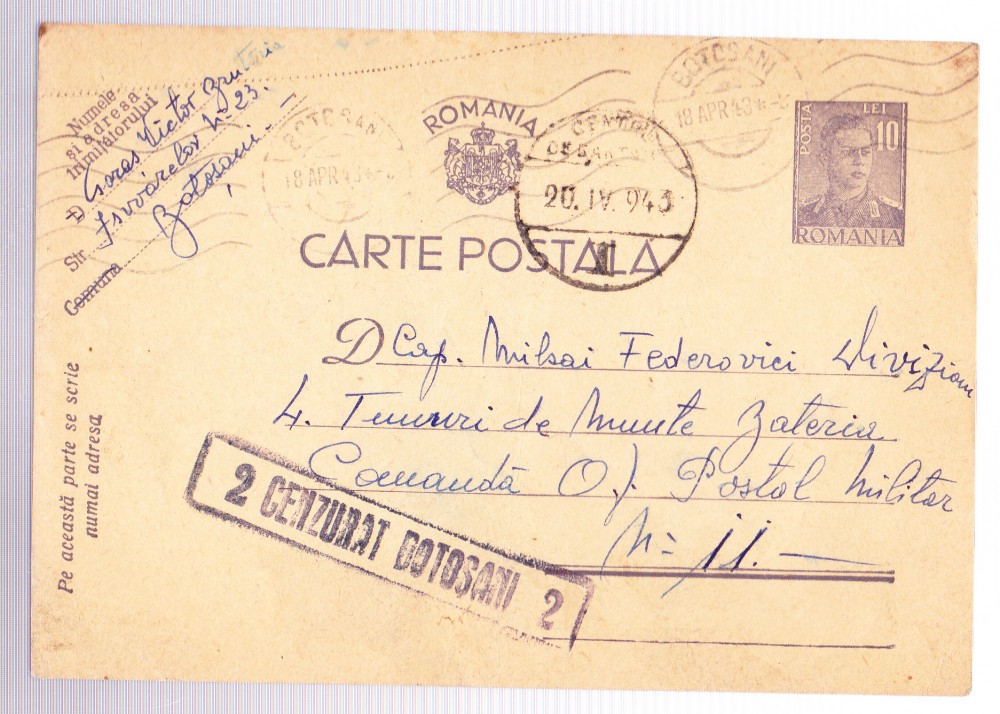 Numele
și adresa
trimițătorului
D Caras Victor
Str. Isvoarelor No 23.
Comuna Botosani
BOTOSANI
18 APR 43
ROMANIA
CENTRUL
20. IV. 943
BOTOSANI
18 APR 43
POSTA LEI
10
ROMANIA
CARTE POSTALA
D Cap. Mihai Federovici Divizion
4. Tunuri de Munte Bateria
Comandă O.) Postal Militar
No 11. —
2 CENZURAT BOTOȘANI 2
Pe această parte se scrie
numai adresa